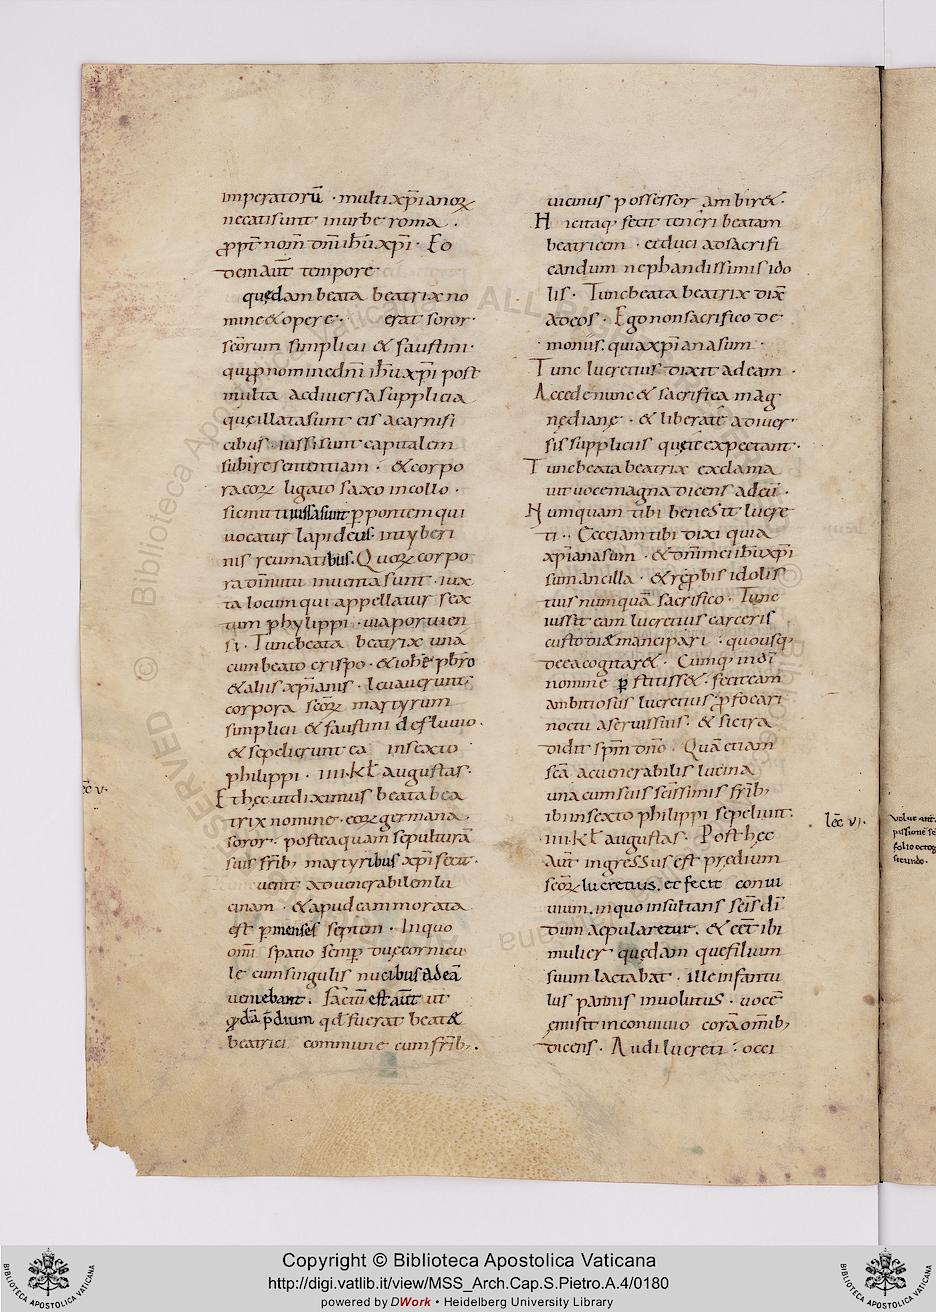 imperatorū · multi xp̄ianoꝝ
necati sunt in urbe roma .
ꝓpt̄ nom̄ dn̄i ih̄u xp̄i · Eo
dem aūt tempore·
quędam beata beatrix no
mine & opere · erat soror·
sc̄orum simplicii & faustini ·
qui ꝓ nomine dn̄i ih̄u xp̄i post
multa ac diversa supplicia
quę illata sunt eis a carnifi
cibus · iussi sunt capitalem
subire sententiam · & corpo
ra eoꝝ ligato saxo in collo ·
sic mitti iussa sunt ꝑ pontem qui
vocatur lapideus· in tyberi
nis reumatibus. Quoꝝ corpo
ra dīnutu inventa sunt · iux
ta locum qui appellatur sex
tum phylippi · via portuen
si · Tunc beata beatrix una
cum beato crispo · & ioh̄e pb̄ro
& aliis xp̄ianis · levaverunt
corpora sc̄oꝝ martyrum
simplicii & faustini de fluvio ·
& sepelierunt ea in sexto
philippi · iiii · kl̄ augustas·
Et hęc ut diximus beata bea
trix nomine · eoꝝ germana ·
soror · postea quam sepulturā
suis fr̄ib; martyribus xp̄i fecit ·
venit ad venerabilem lu
cinam · & apud eam morata
est ꝑ menses septem · In quo
om̄i spatio semꝑ duę cornicu
le cum singulis nucibus ad eā
veniebant . Factū est aūt ut
qdā p̄dium qd̄ fuerat beatę
beatrici commune cum fr̄ib; .
vicinus possessor ambir& ·
Hic itaq; fecit teneri beatam
beatricem · et duci ad sacrifi
candum nephandissimis ido
lis · Tunc beata beatrix dix̄
ad eos · Ego non sacrifico de
monius · quia xp̄iana sum ·
Tunc lucretius dixit ad eam ·
Accede nunc & sacrifica mag
nę dianę · & liberate a diver
sis suppliciis quę te expectant ·
Tunc beata beatrix exclama
vit voce magna dicens ad eū ·
Numquam tibi bene sit lucre
ti · Ecce iam tibi dixi quia
xp̄iana sum · & dn̄i mei ih̄u xp̄i
sum ancilla · & reꝓbis idolis
tuis numquā sacrifico · Tunc
iussit eam lucretius carceris
custodi& mancipari · quousq;
de ea cogitar& · Cumq; in dī
nomine ꝑstitiss& · fecit eam
ambitiosus lucretius p̄focari
noctu a servis suis · & sic tra
didit spm̄ dn̄o · Quā etiam
scā ac venerabilis lucina
una cum suis sc̄issimis fr̄ib;
ibi in sexto philippi sepelivit ·
iiii · kl̄ augustas · Post hęc
aūt ingressus est prędium
sc̄oꝝ lucretius. et fecit convi
vium. in quo insultans sc̄is dī
dum aepularetur. & eēt ibi
mulier quędam quę filium
suum lactabat · ille infantu
lus pannis involutus · vocē
emisit in convivio corā om̄ib;
dicens · Audi lucreti : occi
ec̄ v·
lec̄ vj·